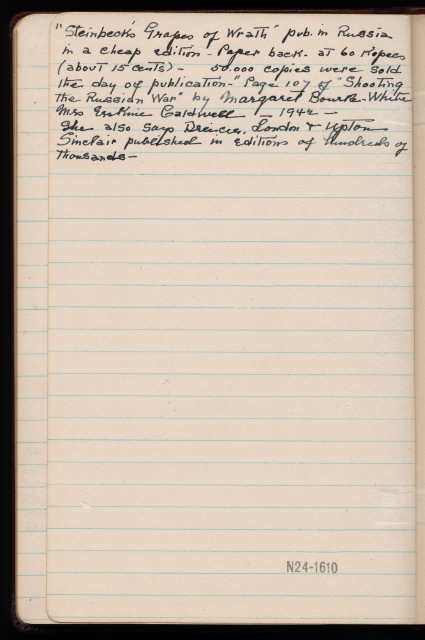 "Steinbeck's Grapes of Wrath" pub. in Russia
in a cheap edition - Paper back - at 60 Kopecs
(about 15 cents) - 50.000 copies were sold
the day of publication -" Page 107 of "Shooting
the Russian War" by Margaret Bourke-White
Mrs Erskine Caldwell - 1942 -
She also says Dreiser, London & Upton
Sinclair published in editions of hundreds of
thousands -
N24-1610